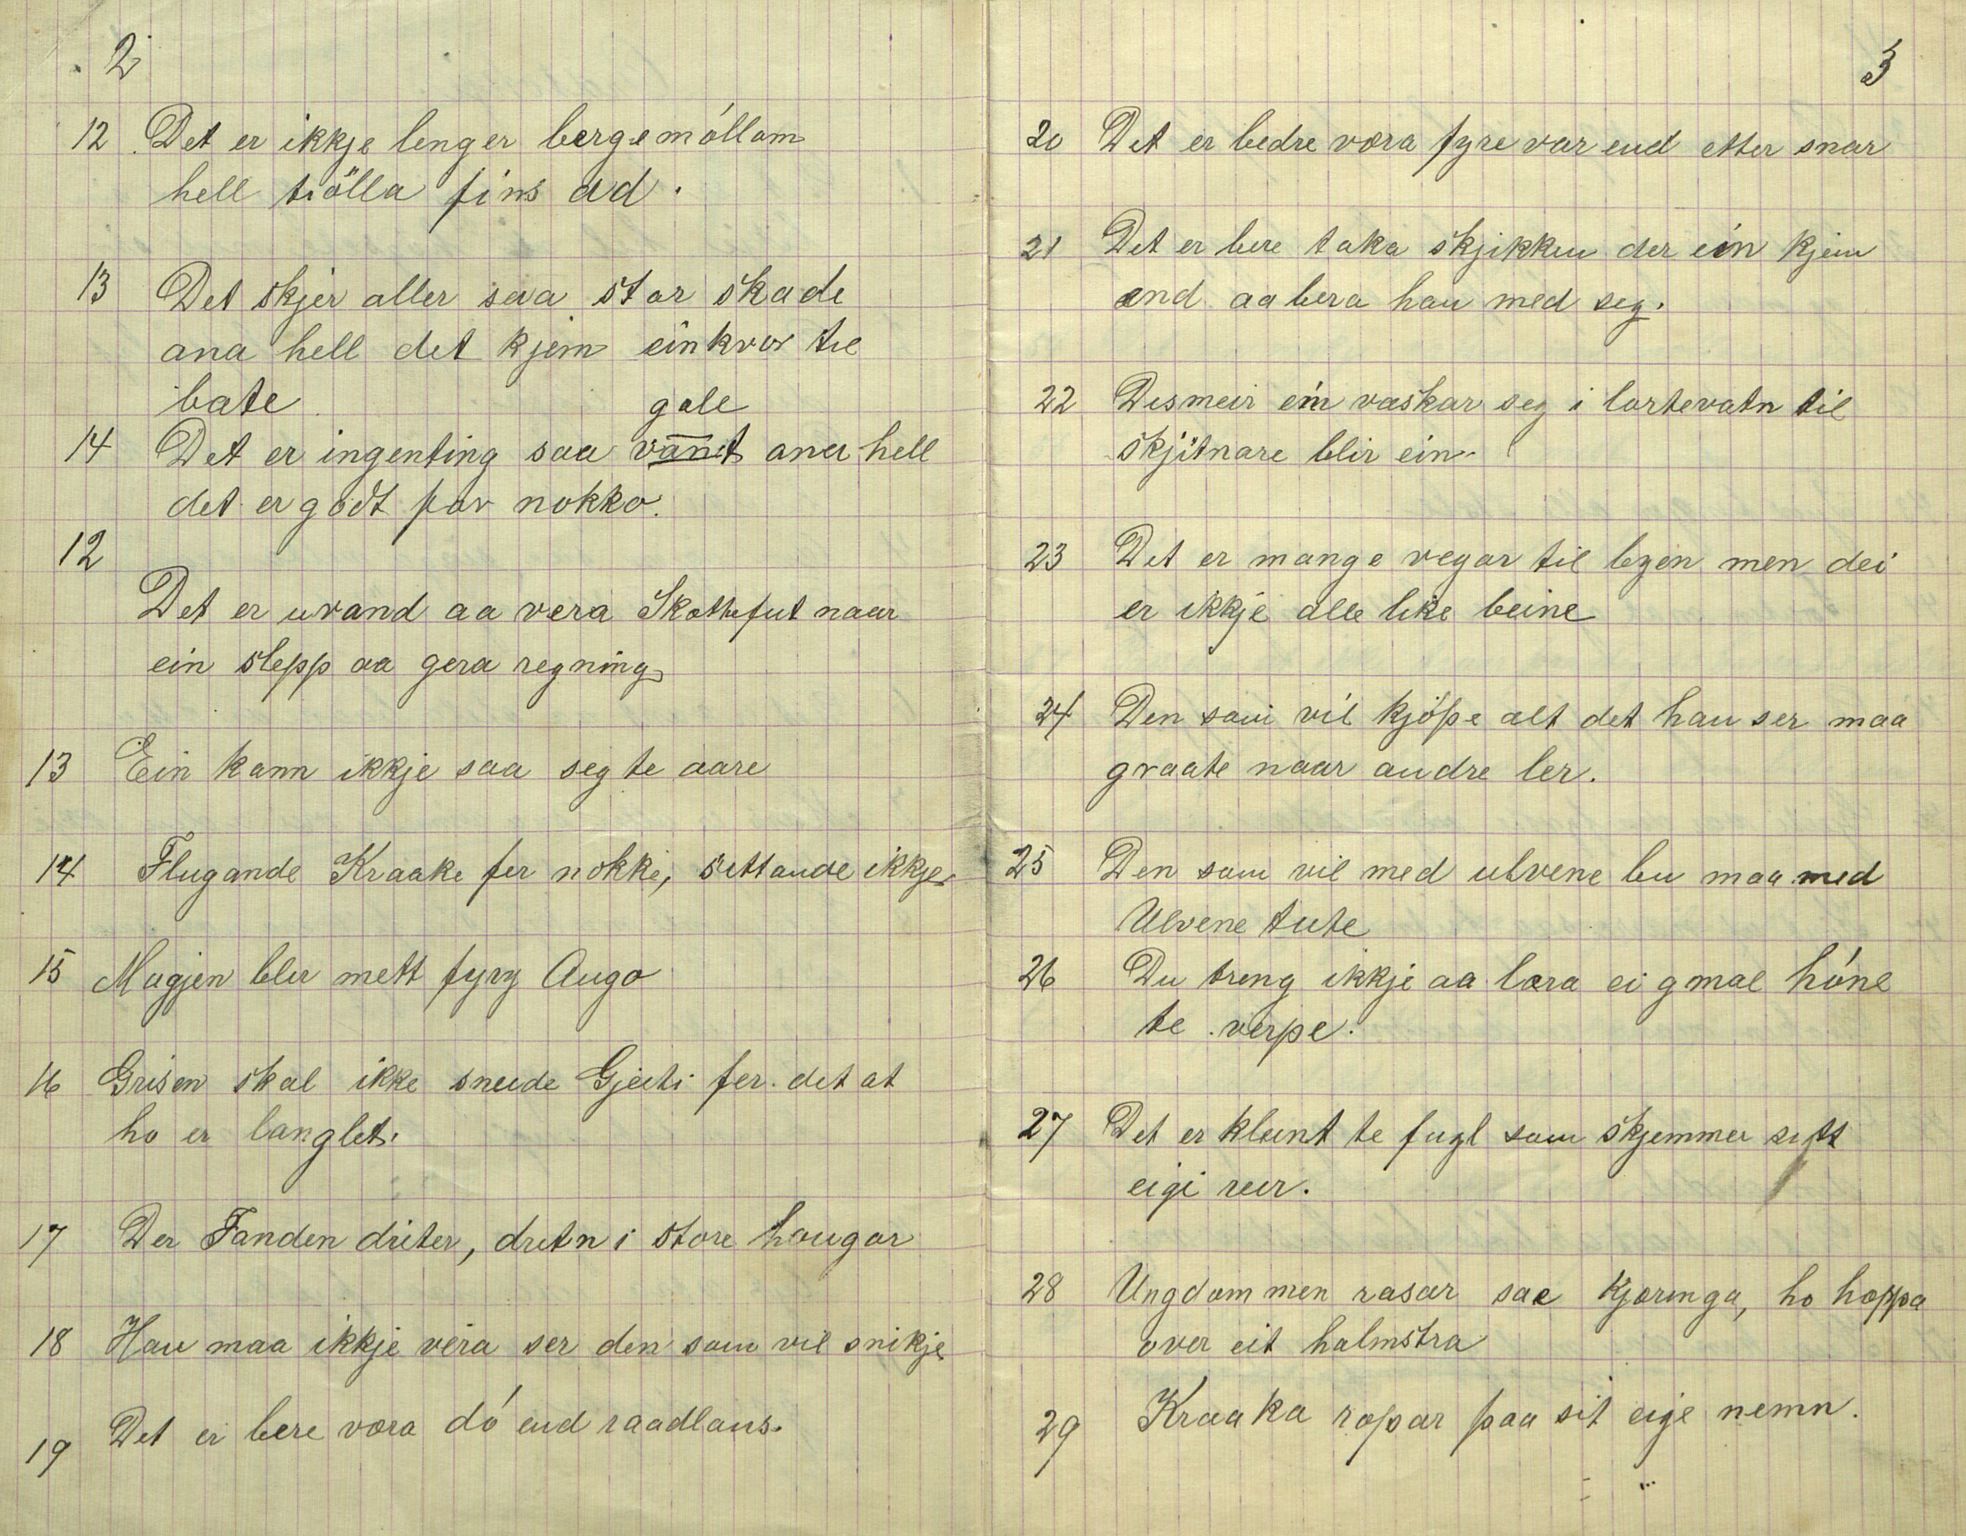 2
12 Det er ikkje lenger bergemóllom
hell tiölla fins ad.
13 Det skjer aller saa stor skade
ana hell det kjem einkvor til
bate
gale
14 Det er ingenting saa vanit ana hell
det er godt for nokko.
12
Det er uvand aa vera Skottefut naar
ein slepp aa gera regning
13 Ein kann ikkje saa seg te aare
14 Flugande Kraake fer nokke, sittande ikkje
15 Magjen blir mett fyry Augo
16 Grisen skal ikke sneide Gjeiti fer det at
ho er langlet.
17 Der Fanden driter, dretn i store hougar
18 Hau maa ikkje véra ser den som vil snikje
19 Det er bere vora dó end raadlaus.
3
20 Det er bedre vora fyre var end etter snar
21 Det er bere taka skjikken der ein kjem
end aa bera han med seg.
22 Desmeir ein vaskar seg i lortevatn til
skjitnare blir ein
23 Det er mange vegar til byen men dei
er ikkje alle like beine
24 Den som vil kjöpe alt det han ser maa
graate naar andre ler.
25 Den som vil med ulvene bu maa med
Ulvene tute
26 Du treng ikkje aa læra ei gmal hóne
te verpe.
27 Det er kleint te fugl som skjemmer sitt
eigi reir.
28 Ungdommen rasar sae Kjæringa, ho hoppa
over eit halmstra
29 Kraaka ropar paa sit eige nemn.